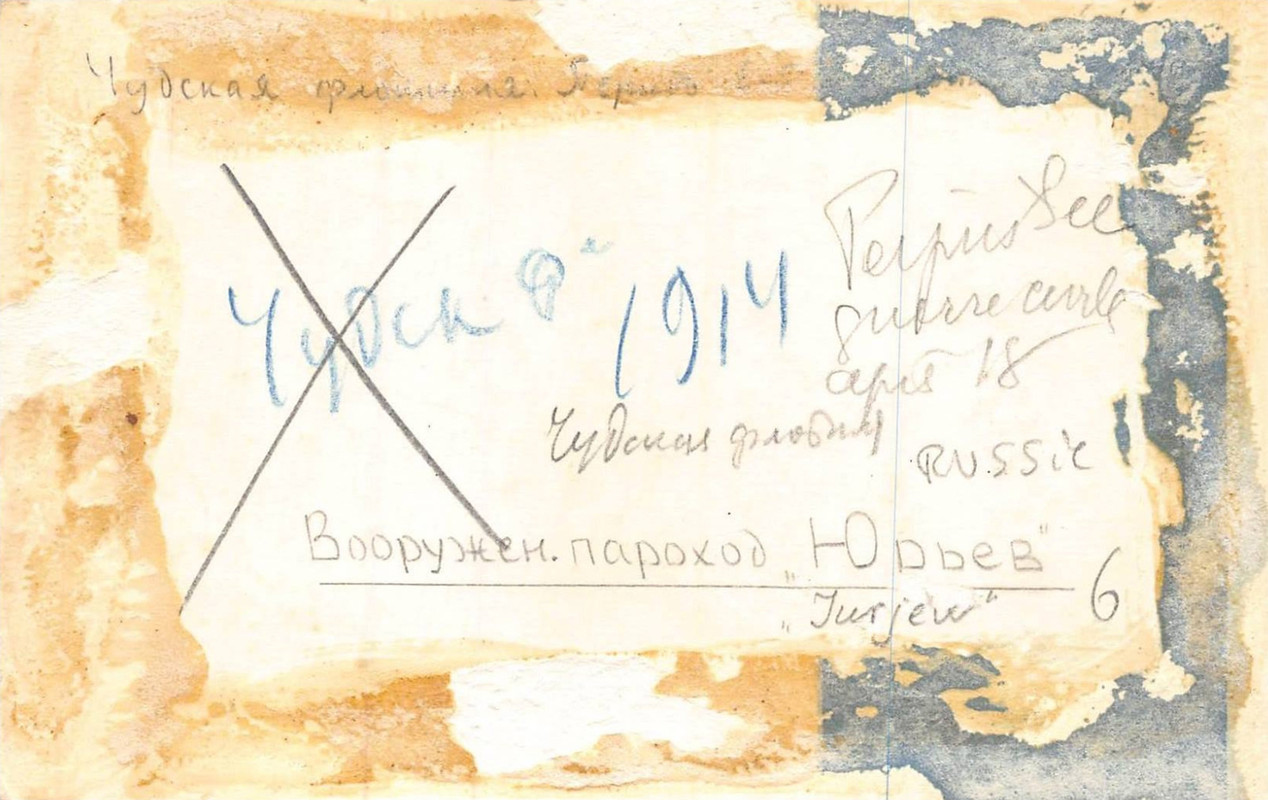 Чудская флотилия.
Чудск 1914
Peipus See
guerre civile
après 18
Чудская флотил
RUSSIE
Вооружен. пароход „Юрьев"
„Jurjew"
6